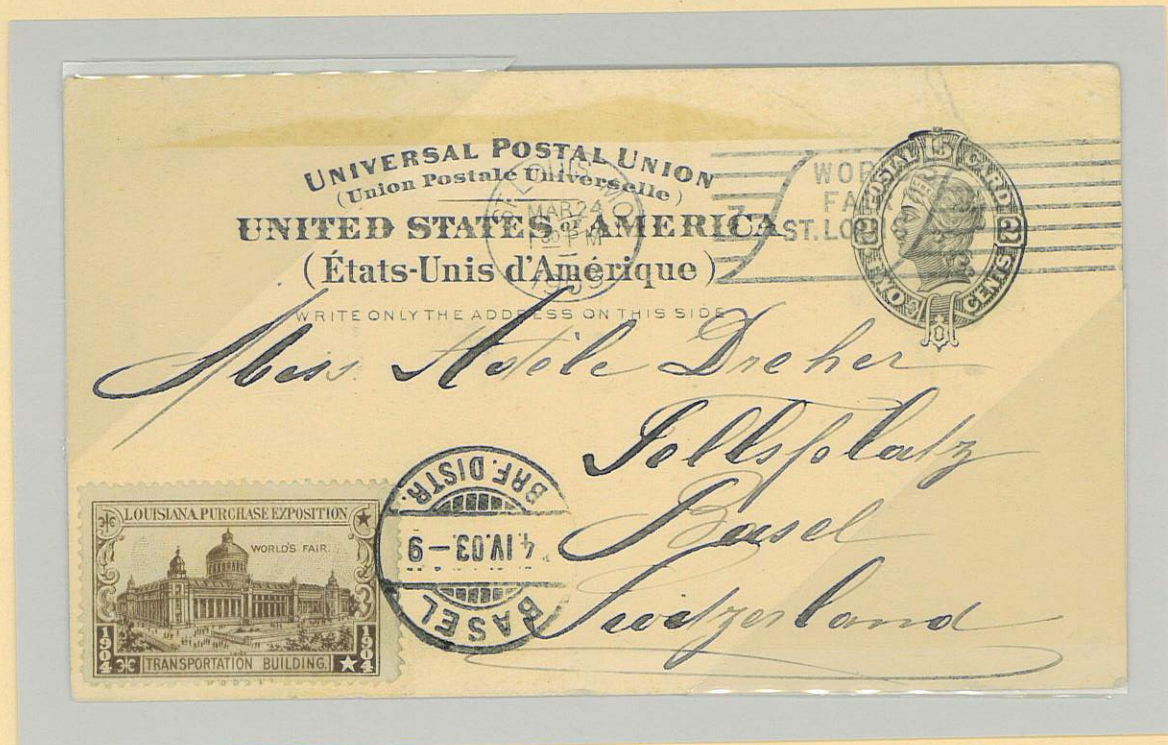 UNIVERSAL POSTAL UNION
(Union Postale Universelle)
UNITED STATES OF AMERICA
(États-Unis d'Amérique)
WRITE ONLY THE ADDRESS ON THIS SIDE
ST. LOUIS, MO.
MAR 24
30 PM
1903
WOR
FA
ST. LO
POSTAL CARD
2 TWO CENTS 2
Miss Adèle Dreher
Tellsplatz
Basel
Switzerland
BRF. DISTR.
4.IV.03.-9
BASEL
LOUISIANA PURCHASE EXPOSITION
WORLD'S FAIR.
1904 1904
TRANSPORTATION BUILDING.